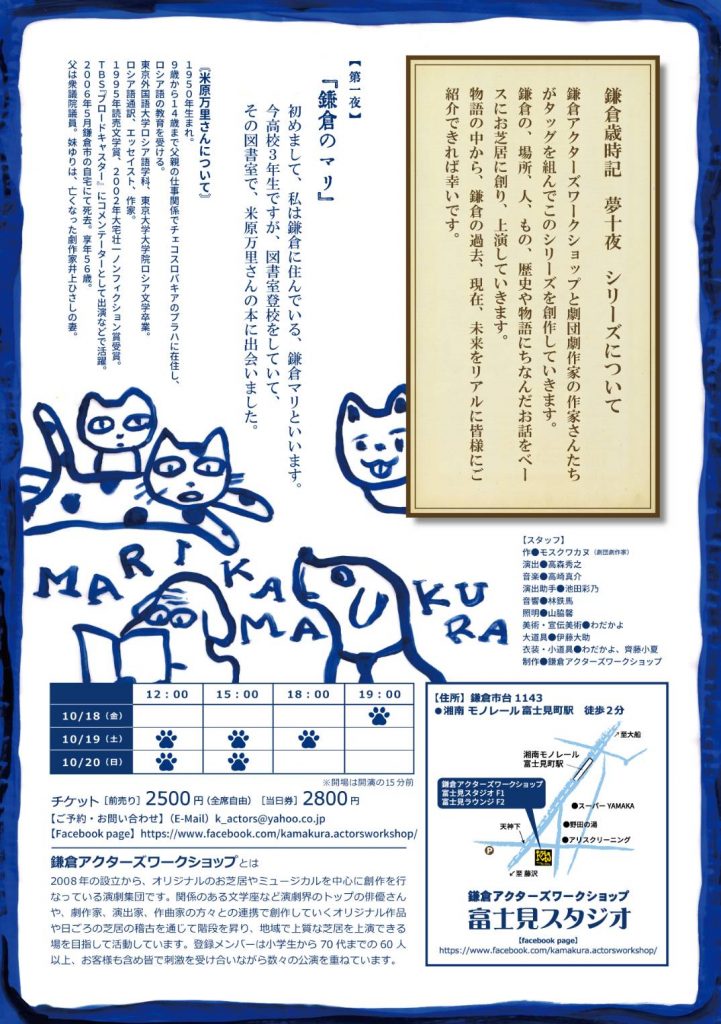 鎌倉歳時記　夢十夜　シリーズについて
鎌倉アクターズワークショップと劇団劇作家の作家さんたち
がタッグを組んでこのシリーズを創作していきます。
鎌倉の、場所、人、もの、歴史や物語にちなんだお話をベー
スにお芝居に創り、上演していきます。
物語の中から、鎌倉の過去、現在、未来をリアルに皆様にご
紹介できれば幸いです。
【第一夜】
『鎌倉のマリ』
初めまして、私は鎌倉に住んでいる、鎌倉マリといいます。
今高校3年生ですが、図書室登校をしていて、
その図書室で、米原万里さんの本に出会いました。
〔米原万里さんについて〕
1950年生まれ。
9歳から14歳まで父親の仕事関係でチェコスロバキアのプラハに在住し、
ロシア語の教育を受ける。
東京外国語大学ロシア語学科、東京大学大学院ロシア文学卒業。
ロシア語通訳、エッセイスト、作家。
1995年読売文学賞、2002年大宅壮一ノンフィクション賞受賞。
TBS『ブロードキャスター』にコメンテーターとして出演などで活躍。
2006年5月鎌倉市の自宅にて死去。享年56歳。
父は衆議院議員。妹ゆりは、亡くなった劇作家井上ひさしの妻。
MARI KAMAKURA
【スタッフ】
作●モスクワカヌ（劇団劇作家）
演出●高森秀之
音楽●高崎真介
演出助手●池田彩乃
音響●林鉄馬
照明●山脇馨
美術・宣伝美術●わだかよ
大道具●伊藤大助
衣装・小道具●わだかよ、齊藤小夏
制作●鎌倉アクターズワークショップ
12：00 15：00 18：00 19：00
10/18（金）
10/19（土）
10/20（日）
※開場は開演の15分前
チケット［前売り］2500円（全席自由）［当日券］2800円
【ご予約・お問い合わせ】（E-Mail）k_actors@yahoo.co.jp
【Facebook page】https://www.facebook.com/kamakura.actorsworkshop/
鎌倉アクターズワークショップとは
2008年の設立から、オリジナルのお芝居やミュージカルを中心に創作を行
なっている演劇集団です。関係のある文学座など演劇界のトップの俳優さん
や、劇作家、演出家、作曲家の方々との連携で創作していくオリジナル作品
や日ごろの芝居の稽古を通じて階段を昇り、地域で上質な芝居を上演できる
場を目指して活動しています。登録メンバーは小学生から70代までの60人
以上、お客様も含め皆で刺激を受け合いながら数々の公演を重ねています。
【住所】鎌倉市台1143
●湘南モノレール富士見町駅　徒歩2分
↗至大船
湘南モノレール
富士見町駅
鎌倉アクターズワークショップ
富士見スタジオ F1
富士見ラウンジ F2
●スーパーYAMAKA
●野田の湯
天神下
●アリスクリーニング
P
↙至 藤沢
鎌倉アクターズワークショップ
富士見スタジオ
【facebook page】
https://www.facebook.com/kamakura.actorsworkshop/